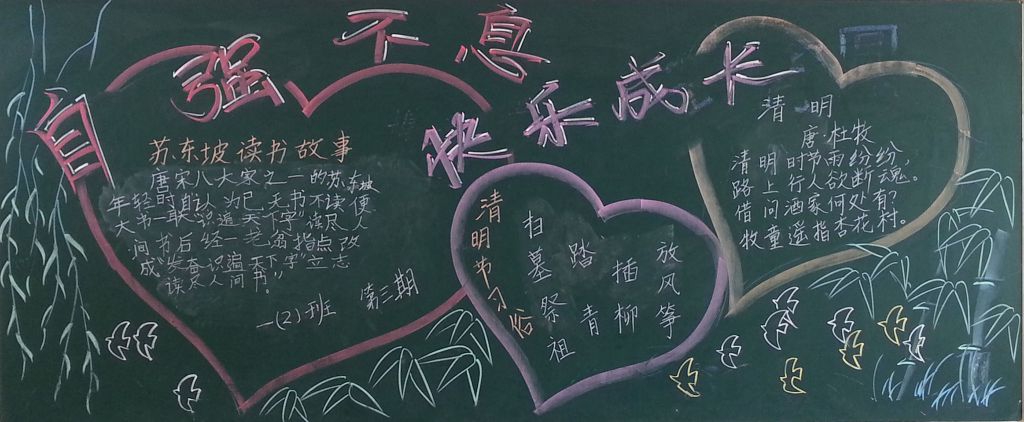 自强不息
快乐成长
苏东坡读书故事
唐宋八大家之一的苏东坡
年轻时自认为已无书不读便
大书一联"识遍天下字读尽人
间书后经一老翁指点改
成"发奋识遍天下字"立志
读尽人间书"。
一(2)班 第三期
清明节习俗
扫墓祭祖
踏青
插柳
放风筝
清明
唐·杜牧
清明时节雨纷纷,
路上行人欲断魂。
借问酒家何处有?
牧童遥指杏花村。